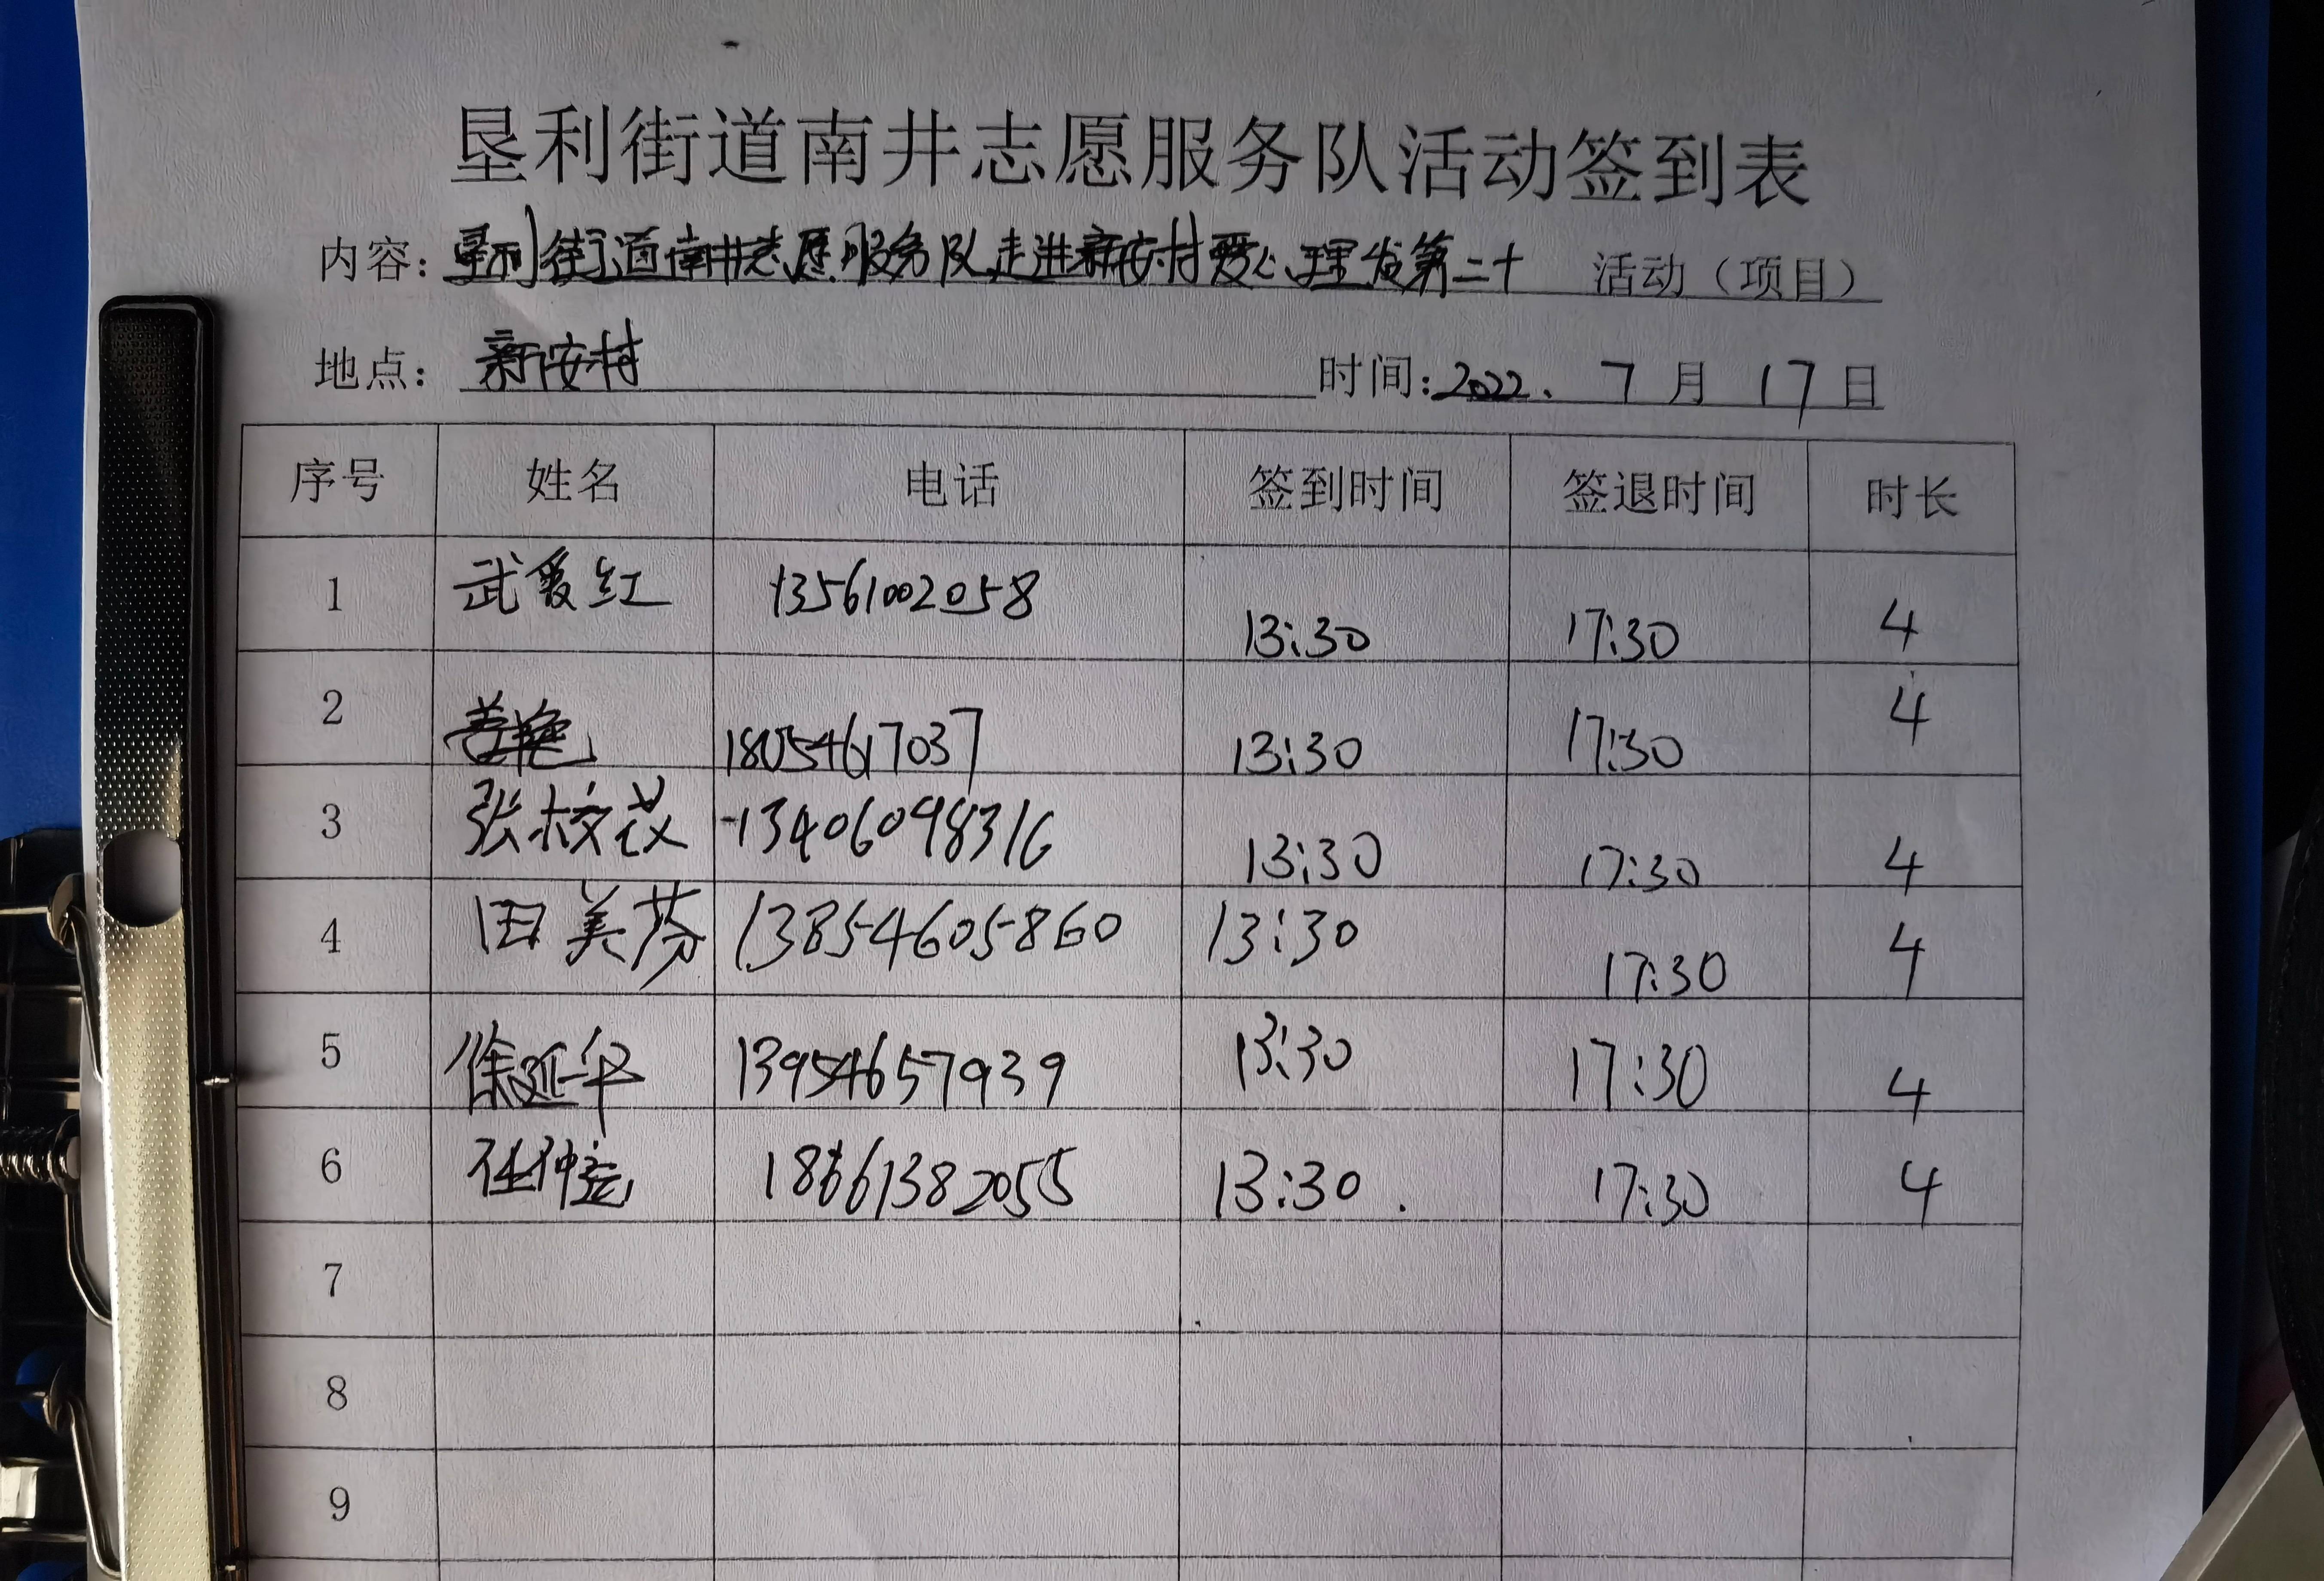 垦利街道南井志愿服务队活动签到表
内容：垦利街道南井志愿服务队走进新安村爱心理发第二十 活动（项目）
地点：新安村 时间：2022. 7月17日
序号 姓名 电话 签到时间 签退时间 时长
1 武爱红 13561002058 13:30 17:30 4
2 18054617037 13:30 17:30 4
3 张校议 13406098316 13:30 17:30 4
4 田美芬 13854605860 13:30 17:30 4
5 徐延华 13954657939 13:30 17:30 4
6 18661382055 13:30 17:30 4
7
8
9